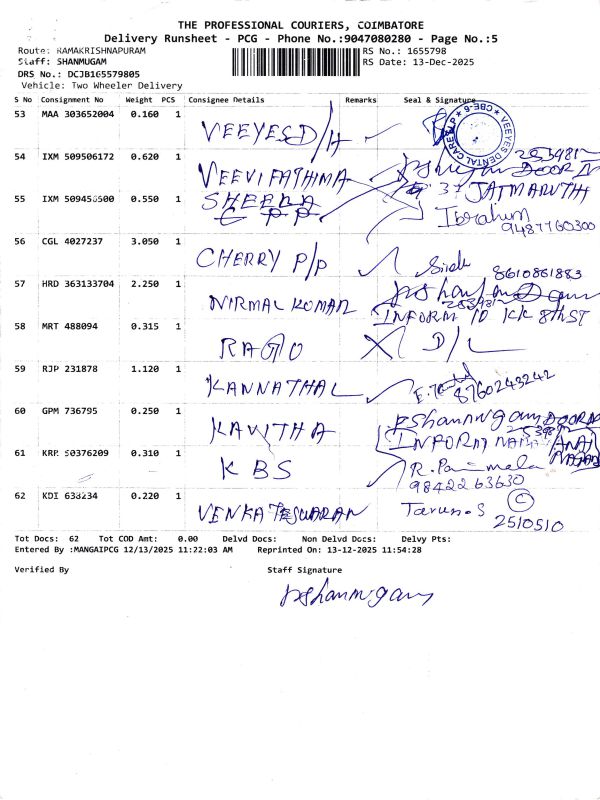 THE PROFESSIONAL COURIERS, COIMBATORE
Delivery Runsheet - PCG - Phone No.:9047080280 - Page No.:5
Route: RAMAKRISHNAPURAM
RS No.: 1655798
Staff: SHANMUGAM
RS Date: 13-Dec-2025
DRS No.: DCJB165579805
Vehicle: Two Wheeler Delivery
S No Consignment No Weight PCS Consignee Details Remarks Seal & Signature
53 MAA 303652004 0.160 1 VEEYES D/H
VEEYES DENTAL CARE CBE-6
54 IXM 509506172 0.620 1 VEEVI FATHIMA
37 JATMARUTHI
55 IXM 509456500 0.550 1 SHEEBA
Ibrahim
9487760300
56 CGL 4027237 3.050 1 CHERRY P/P
8610861883
57 HRD 363133704 2.250 1 NIRMAL KUMAR
INFORM 10 KK 8th ST
58 MRT 488094 0.315 1 RAGO D/L
59 RJP 231878 1.120 1 KANNATHAL
8760243242
60 GPM 736795 0.250 1 KAVITHA
Pshanmugam DOOR
INFORM
61 KRP 50376209 0.310 1 KBS
R. Parimala
9842263630
62 KDI 638234 0.220 1 VENKATESWARAN
Tarun.S
C
2510510
Tot Docs: 62 Tot COD Amt: 0.00 Delvd Docs: Non Delvd Docs: Delvy Pts:
Entered By :MANGAIPCG 12/13/2025 11:22:03 AM Reprinted On: 13-12-2025 11:54:28
Verified By Staff Signature
Pshanmugam